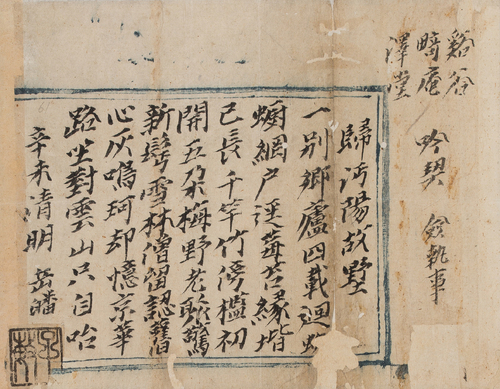 谿谷
畸庵
澤堂
吟契 僉執事
歸沔陽故墅
一別鄉廬四載迴
蛸網戶逕莓苔緣堦
已長千竿竹傍檻初
開五朶梅野老驚
新鬢雪林僧留認舊
心灰鳴珂却憶京華
路坐對雲山只自咍
辛未清明 岳皤